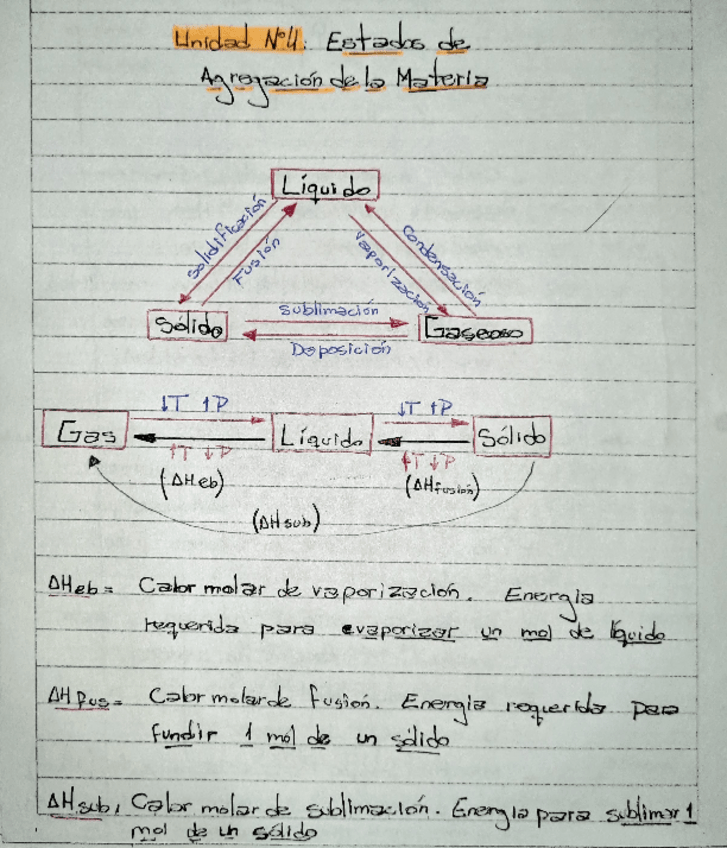 Unidad Nº4: Estados de
Agregación de la Materia
Líquido
Solidificación
Fusión
Vaporización
Condensación
Sólido
Sublimación
Gaseoso
Deposición
↓T ↑P
↓T ↑P
Gas
Líquido
Sólido
↑T ↓P
↑T ↓P
(ΔHeb)
(ΔHfusión)
(ΔHsub)
ΔHeb= Calor molar de vaporización. Energia
requerida para evaporizar un mol de líquido
ΔHfus= Calor molar de fusión. Energia requerida para
fundir 1 mol de un sólido
ΔHsub, Calor molar de sublimación. Energia para sublimar 1
mol de un sólido